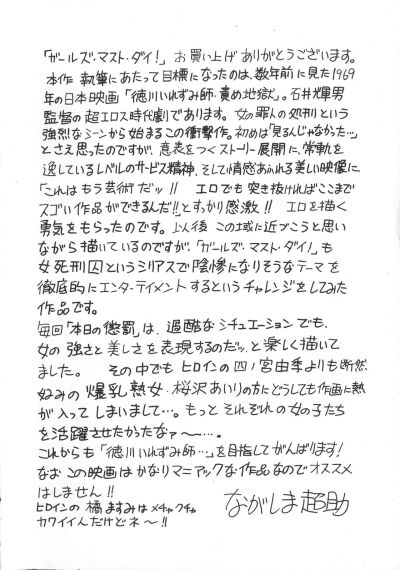 「ガールズ・マスト・ダイ!」お買い上げありがとうございます。
本作 執筆にあたって目標になったのは、数年前に見た1969
年の日本映画「徳川いれずみ師・責め地獄」。石井輝男
監督の超エロス時代劇であります。女の罪人の処刑という
強烈なシーンから始まるこの衝撃作。初めは「見るんじゃなかった…」
とさえ思ったのですが、意表をつくストーリー展開に、常軌を
逸しているレベルのサービス精神、そして情感あふれる美しい映像に
「これはもう芸術だッ!! エロでも突き抜ければここまで
スゴい作品ができるんだ!!」とすっかり感激!! エロを描く
勇気をもらったのです。以後 この域に近づこうと思い
ながら描いているのですが、「ガールズ・マスト・ダイ!」も
女死刑囚というシリアスで陰惨になりそうなテーマを
徹底的にエンターテイメントするというチャレンジをしてみた
作品です。
毎回「本日の懲罰」は、過酷なシチュエーションでも、
女の強さと美しさを表現するのだッ、と楽しく描いて
ました。 その中でも ヒロインの四ノ宮由季よりも断然
好みの爆乳熟女・桜沢あいりの方にどうしても作画に熱
が入ってしまいまして…。もっと それぞれの女の子たち
を活躍させたかったなァ〜…。
これからも「徳川いれずみ師…」を目指してがんばります!
なお この映画はかなりマニアックな作品なのでオススメ
はしません!!
ヒロインの 橘ますみはメチャクチャ
カワイイんだけどネ〜!!
ながしま超助